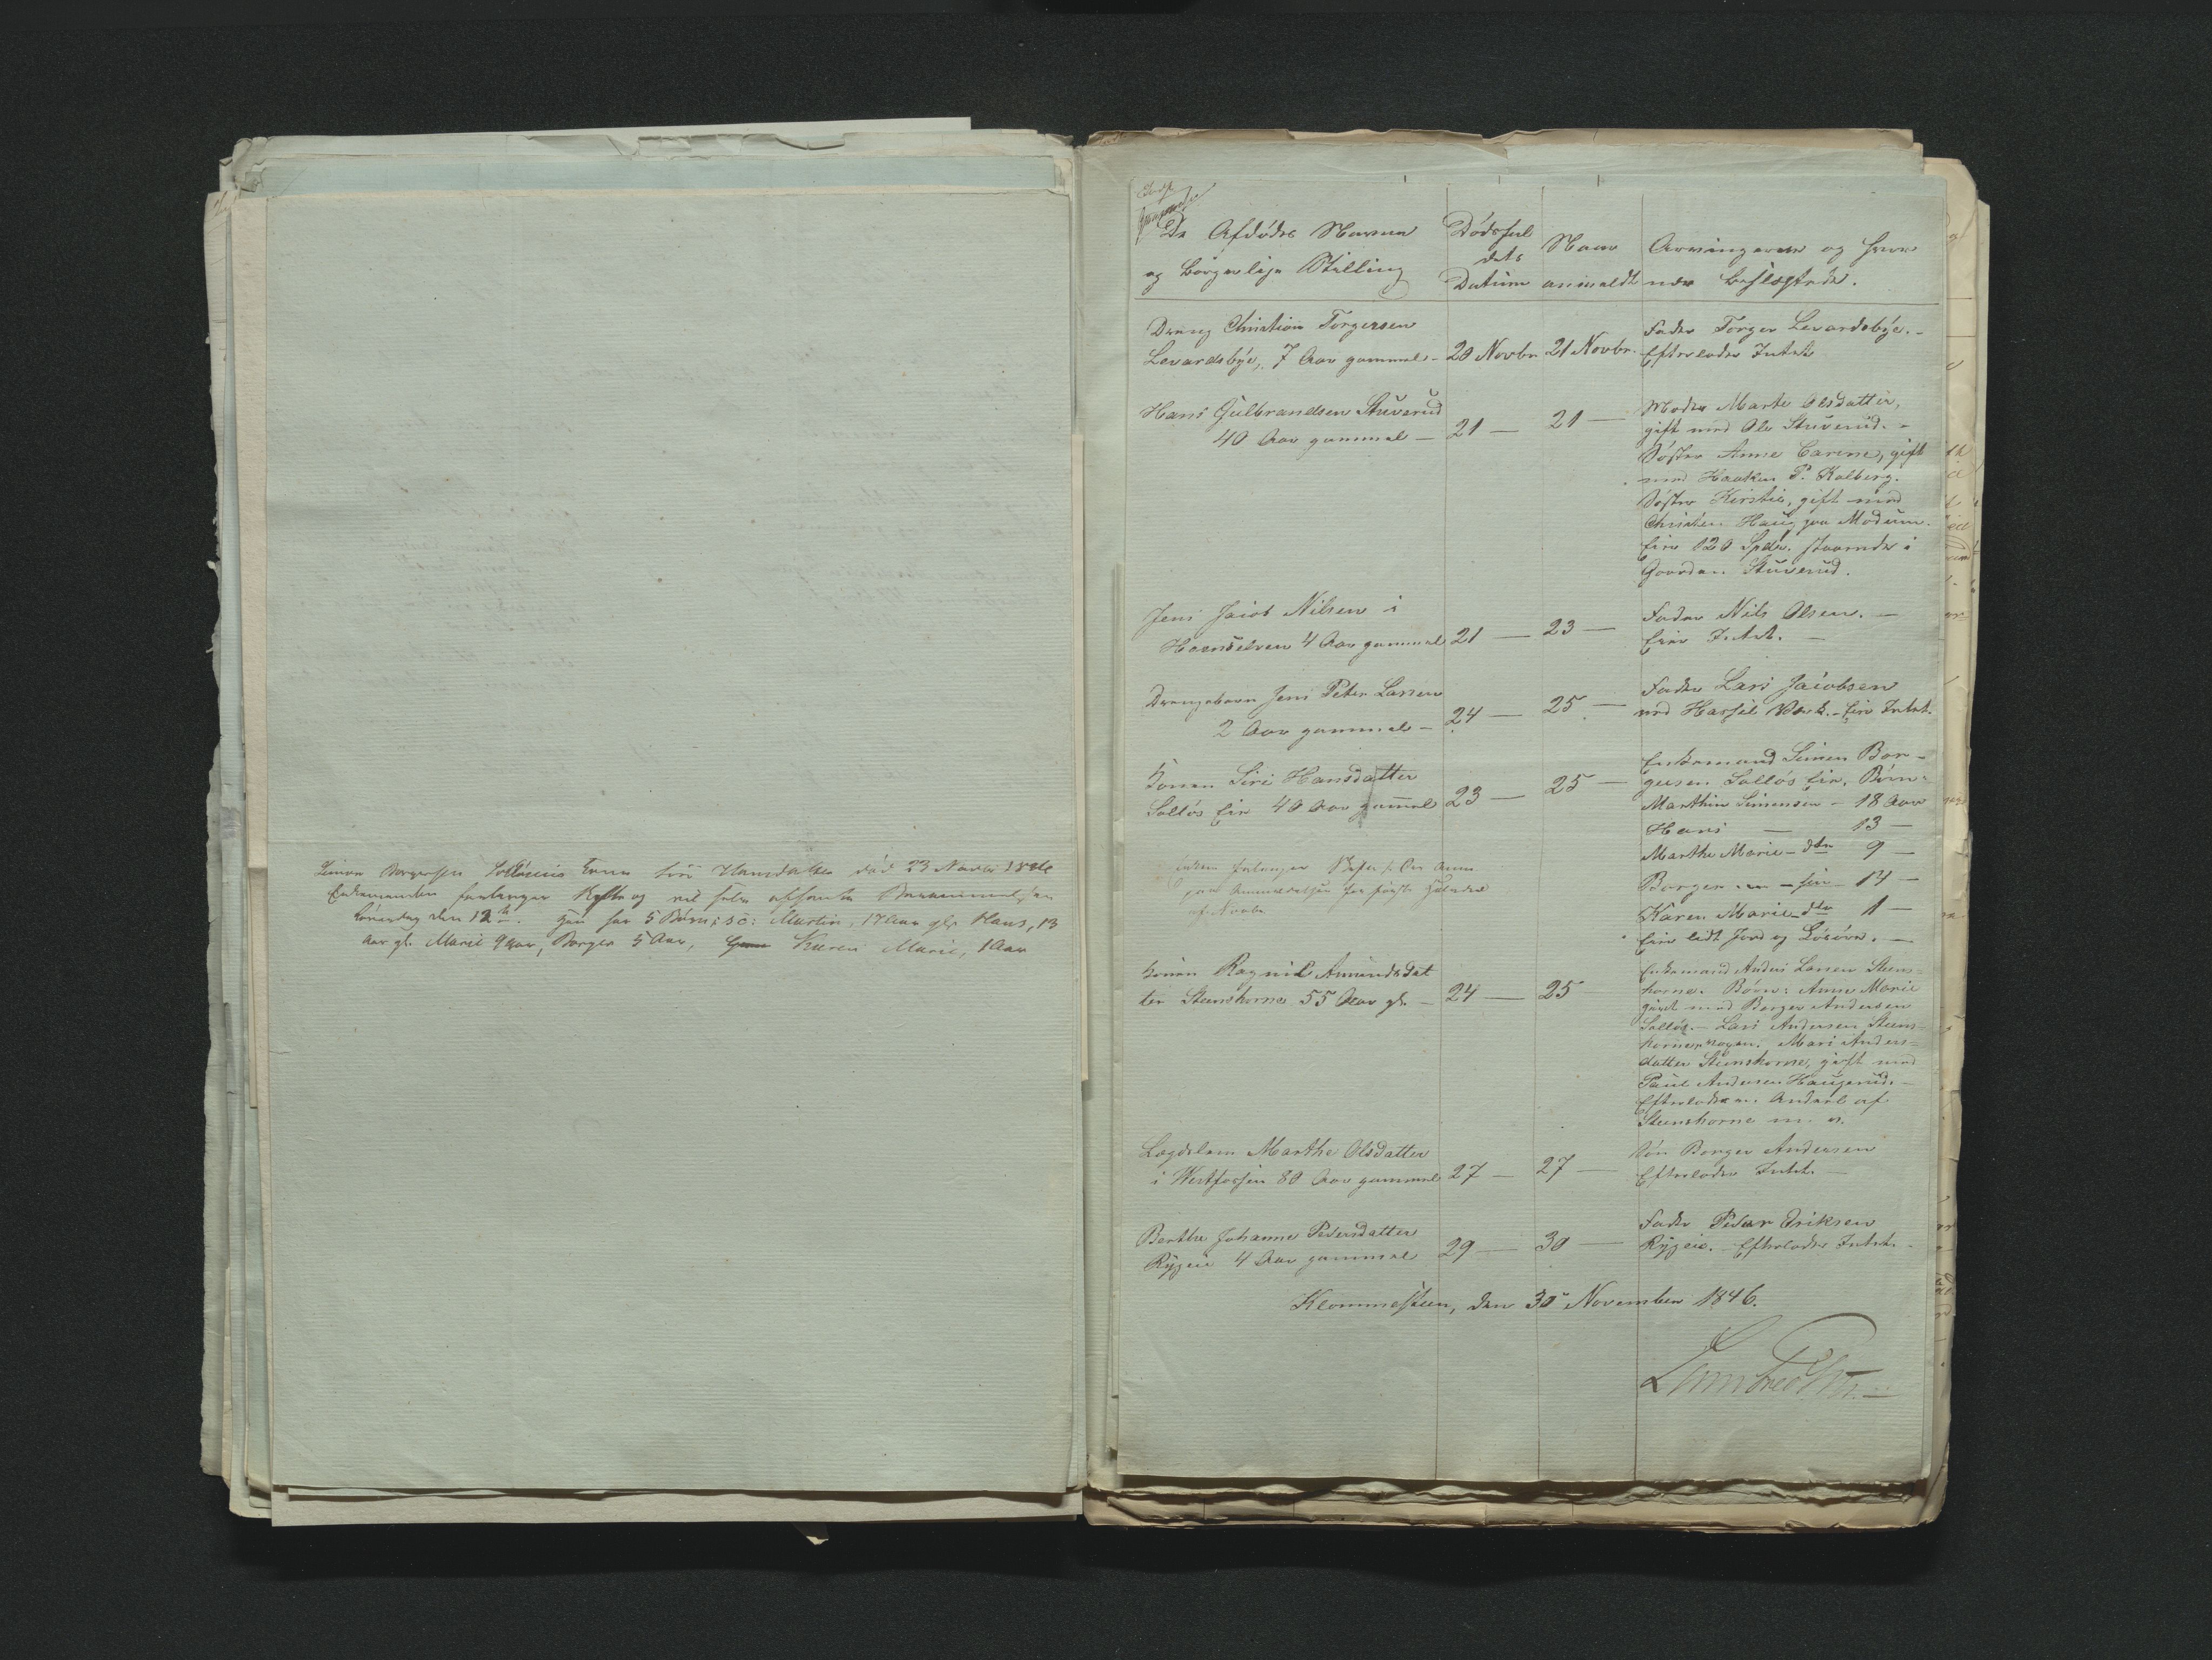 Simon Borgersen Solløs's Kone Siri Hansdatter død 23 Novbr 1846
Enkemanden forlanger Skifte og vil selv
Løverdag den 12te. Hun har 5 Børn; so: Martin, 17 Aar gl. Hans, 13
Aar gl. Marie 9 Aar, Borger 5 Aar, Karen Marie, 1 Aar
De Afdødes Navne
og borgerlige Stilling
Dødsfal
dets
Datum
Naar
anmeldt
Arvingerne og hvor
nær beslægtede.
Dreng Christian Torgersen
Levardsbye, 7 Aar gammel –
20 Novbr.
21 Novbr.
Fader Torger Levardsbye. –
Efterlader Intet
Hans Gulbrandsen Stuverud
40 Aar gammel –
21 –
21 –
Moder Marte Olsdatter,
gift med Ole Stuverud. –
Søster Anne Carine, gift
med Haaken P. Kolberg.
Søster Kirstie, gift med
Christen Haug paa Modum.
Eier 120 Spdr. staaende i
Gaarden Stuverud.
Jens Jacob Nilsen i
Hoenselven 4 Aar gammel
21 –
23 –
Fader Nils Olsen. –
Eier Intet. –
Drengebarn Jens Peter Larsen
2 Aar gammel –
24 –
25 –
Fader Lars Jacobsen
ved Hassel Værk. – Eier Intet.
Konen Siri Hansdatter
Solløs Eie 40 Aar gammel
23 –
25 –
Enkemand Simen Bor-
gersen Solløs Eie. Børn:
Marthin Simensen – 18 Aar
Hans – 13 –
Marthe Marie – dtr 9 –
Borger – – sen 14 –
Karen Marie – dtr 1 –
Eier lidt Jord og Løsøre. –
Enkem forlanger Skifte
af Novbr
Konen Ragnil Amundsdat
ter Steenshorne 55 Aar gl. –
24 –
25
Enkemand Anders Larsen Steens-
horne. Børn: Anne Marie
givt med Borger Andersen
Solløs. – Lars Andersen Steens-
Mari Anders-
datter Steenshorne, gift med
Paul Andersen Haugerud. –
Efterlader Andeel af
Steenshorne m. v.
Lægdslem Marthe Olsdatter
i Westfossen 80 Aar gammel
27 –
27 –
Søn Borger Andersen
Efterlader Intet. –
Berthe Johanne Pedersdatter
Rygeie 4 Aar gammel
29 –
30 –
Fader Peder Eriksen
Rygeie. – Efterlader Intet. –
Klommesteen, den 30 November 1846.